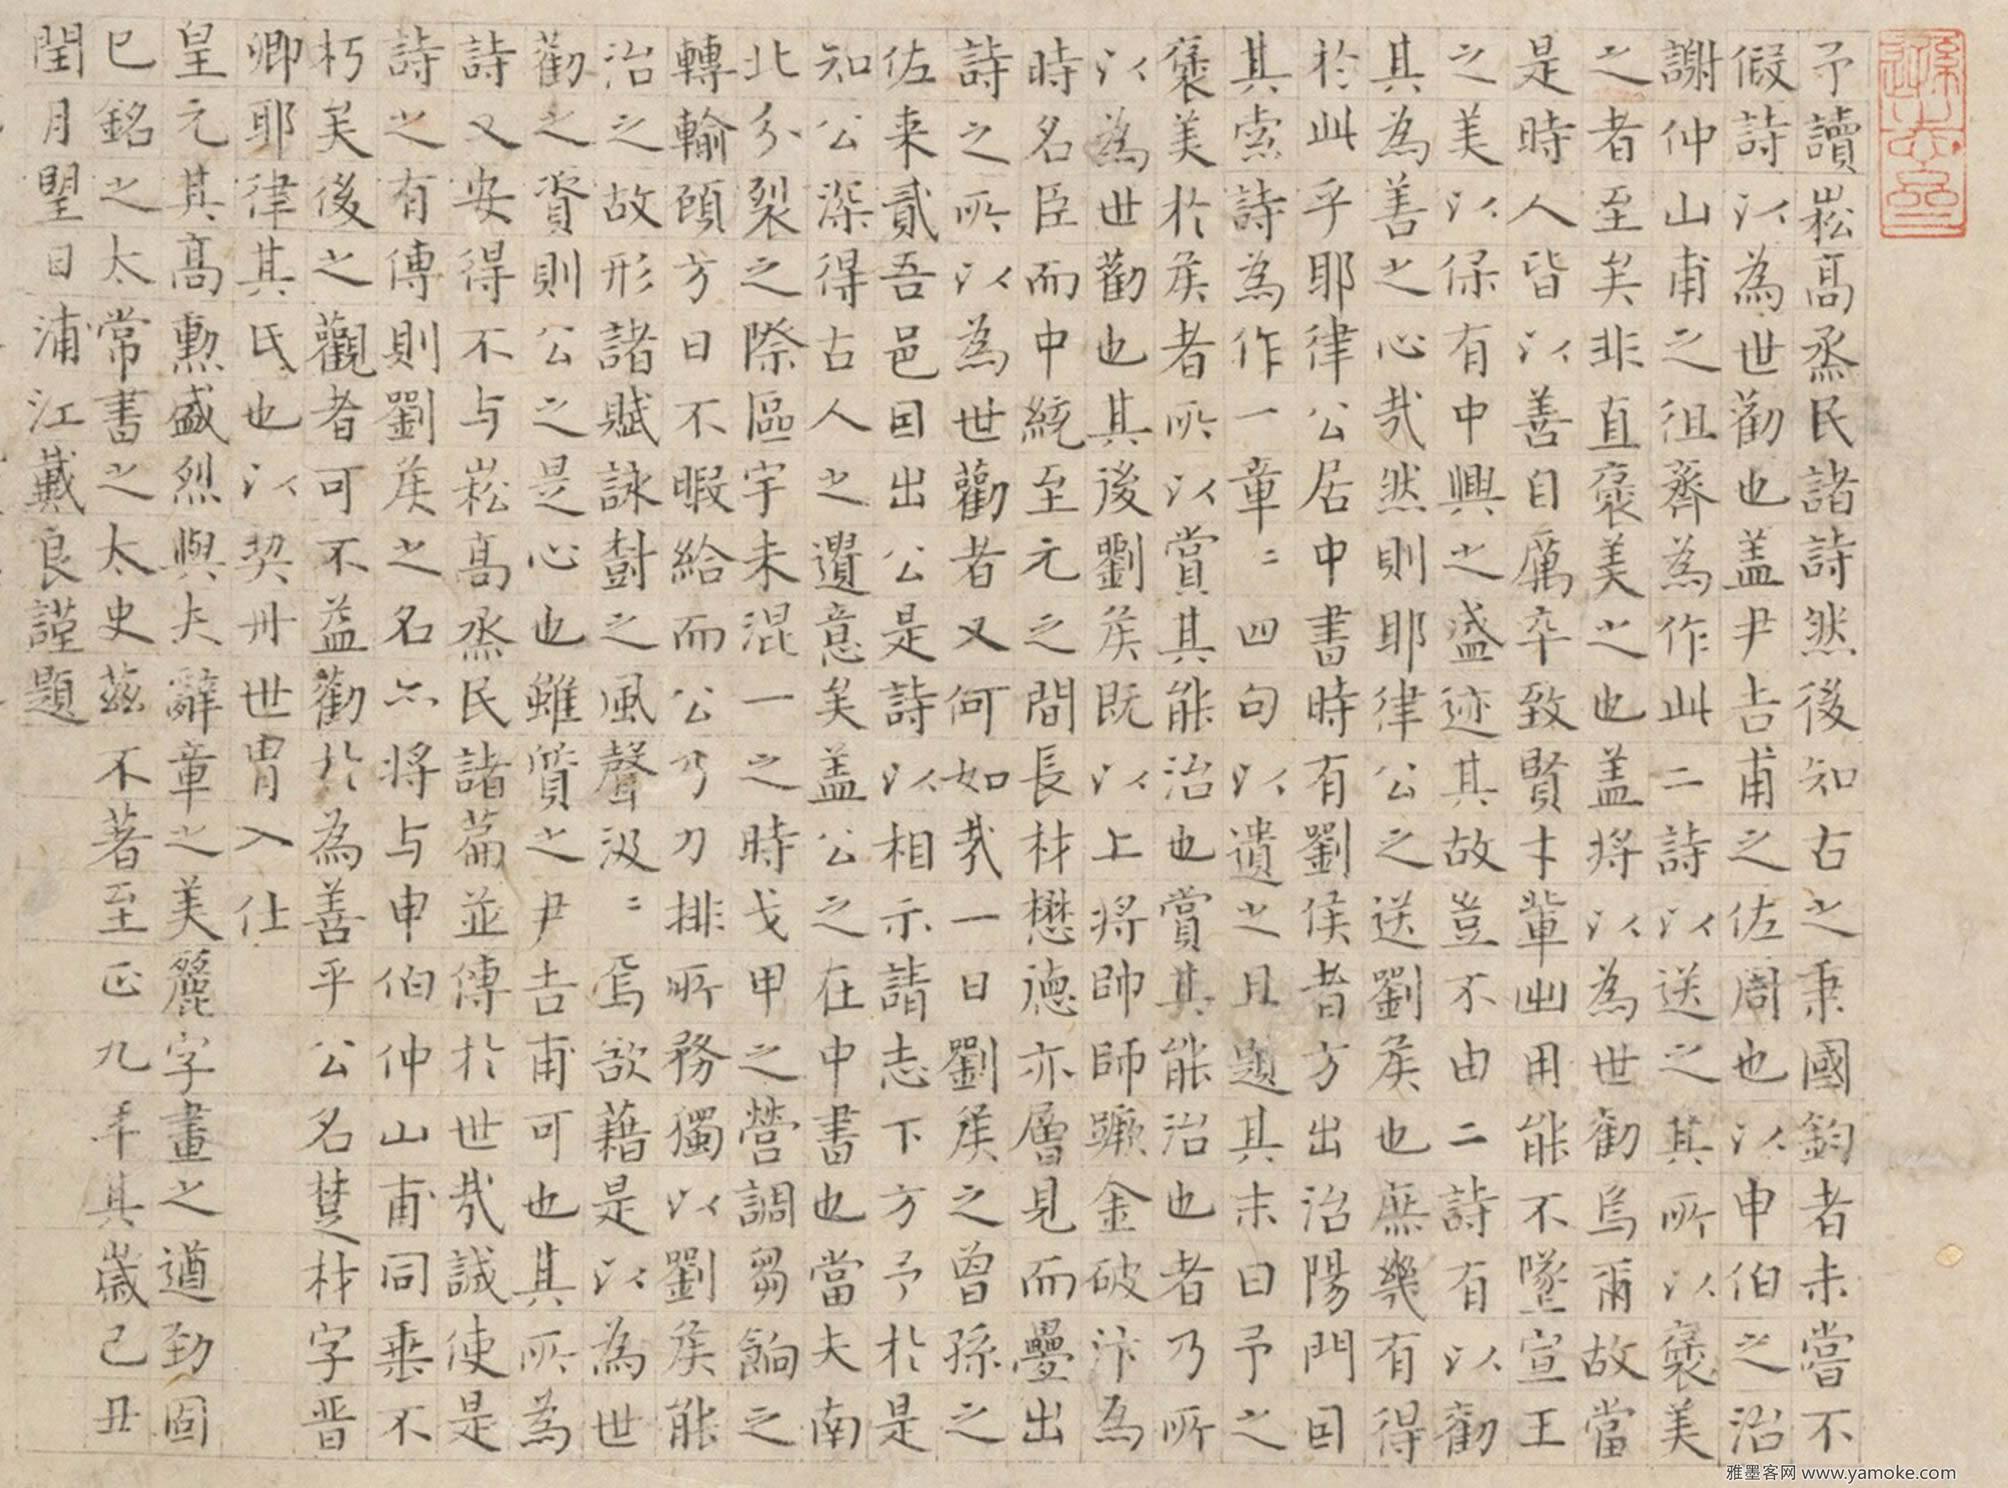 予讀崧髙烝民諸詩然後知古之秉國鈞者未嘗不
假詩以為世勸也盖尹吉甫之佐周也以申伯之治
謝仲山甫之徂齊為作此二詩以送之其所以褒美
之者至矣非直褒美之也盖将以為世勸焉爾故當
是時人皆以善自厲卒致賢才輩出用能不墜宣王
之美以保有中興之盛迹其故豈不由二詩有以勸
其為善之心㢤然則耶律公之送劉矦也庶幾有得
於此乎耶律公居中書時有劉侯者方出治陽門囙
其索詩為作一章二四句以遺之且題其末曰予之
褒美於矦者所以賞其能治也賞其能治也者乃所
以為世勸也其後劉矦既以上将帥師蹶金破汴為
時名臣而中統至元之間長材懋德亦層見而疊出
詩之所以為世勸者又何如㢤一日劉矦之曾孫之
佐来貳吾邑囙出公是詩以相示請志下方予於是
知公深得古人之遺意矣盖公之在中書也當夫南
北分裂之際區宇未混一之時戈甲之營調芻餉之
轉輸頋方日不暇給而公乃力排所務獨以劉矦能
治之故形諸賦詠尌之風聲汲二焉欲藉是以為世
勸之資則公之是心也雖質之尹吉甫可也其所為
詩又安得不与崧髙烝民諸篇並傳於世㢤誠使是
詩之有傳則劉矦之名亦将与申伯仲山甫同垂不
朽矣後之觀者可不益勸於為善乎公名楚材字晋
卿耶律其氏也以契丹世胄入仕
皇元其髙勲盛烈與夫辭章之美麗字畫之遒勁固
已銘之太常書之太史茲不著至正九年其歳己丑
閏月朢日浦江戴良謹題
雅墨客网 www.yamoke.com